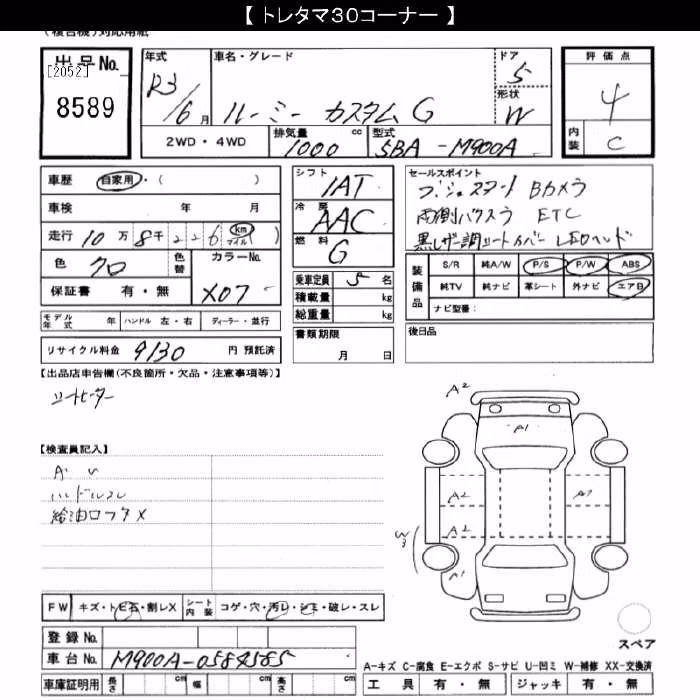 【トレタマ30コーナー】
(複合機)対応用紙
出品No.
[2052]
8589
年式
R3/6月
車名・グレード
ルーミー カスタムG
ドア
5
形状
W
評価点
4
内装
C
2WD・4WD
排気量 1000 cc
型式 5BA-M900A
車歴 自家用・( )
車検 年 月
走行 10万8千226 (km マイル)
色 クロ
色替
カラーNo.
X07
保証書 有・無
モデル年式 年 ハンドル 左・右 ディーラー・並行
リサイクル料金 9130 円 預託済
シフト
IAT
冷房
AAC
燃料
G
乗車定員 5 名
積載量 kg
総重量 kg
書類期限
月 日
セールスポイント
プッシュスタート Bカメラ
両側パワスラ ETC
黒レザー調シートカバー LEDヘッド
装備品
S/R 純A/W P/S P/W ABS
純TV 純ナビ 革シート 外ナビ エアB
ナビ型番:
後日品
【出品店申告欄(不良箇所・欠品・注意事項等)】
シートヒーター
【検査員記入】
A U
ハンドルスレ
給油口フタX
A2
A1
A2
A1
A2
W3
A1
FW キズ・トビ石・割レX
シート内装 コゲ・穴・汚レ・シミ・破レ・スレ
登録No.
車台No. M900A-0584585
車庫証明用 長さ cm 幅 cm 高さ cm
スペア
A-キズ C-腐食 E-エクボ S-サビ U-凹ミ W-補修 XX-交換済
工具 有・無 ジャッキ 有・無